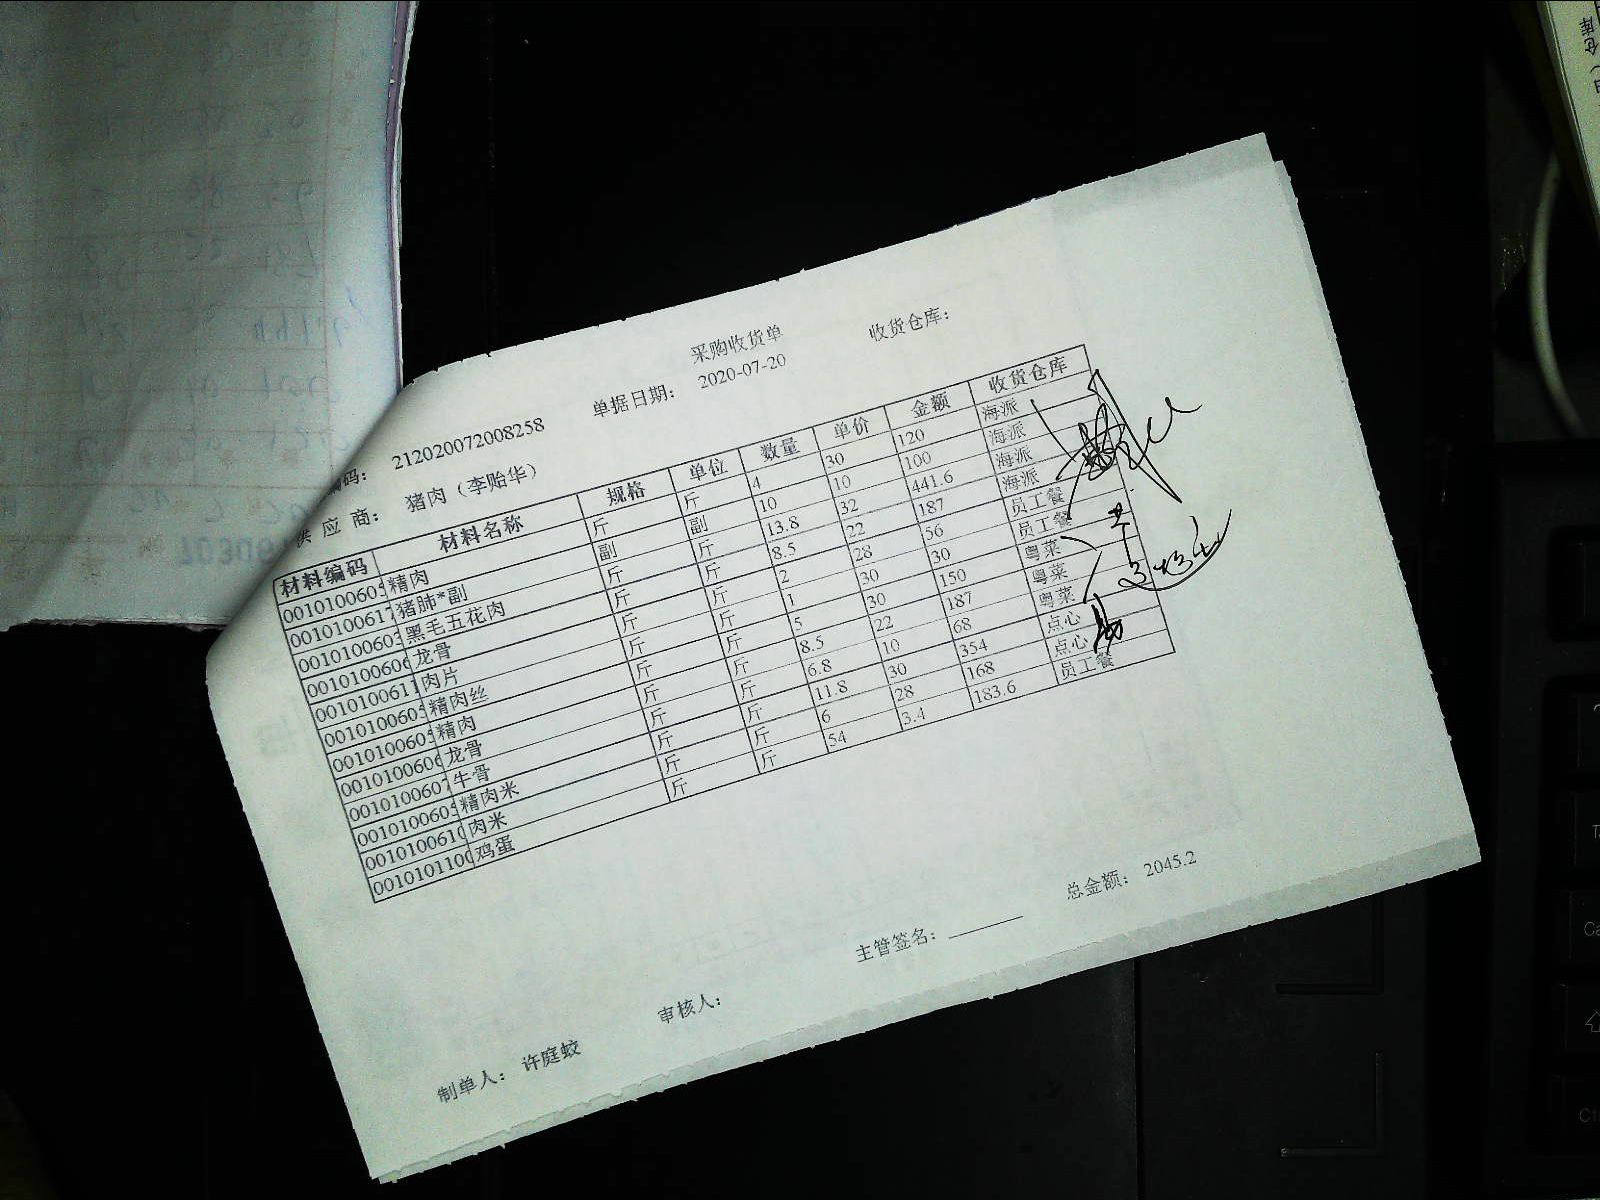 采购收货单
收货仓库：
编码： 212020072008258 单据日期： 2020-07-20
供 应 商： 猪肉（李贻华）
材料编码 材料名称 规格 单位 数量 单价 金额 收货仓库
0010100605 精肉 斤 斤 4 30 120 海派
0010100617 猪肺*副 副 副 10 10 100 海派
0010100603 黑毛五花肉 斤 斤 13.8 32 441.6 海派
0010100606 龙骨 斤 斤 8.5 22 187 海派
0010100611 肉片 斤 斤 2 28 56 员工餐
0010100605 精肉丝 斤 斤 1 30 30 员工餐
0010100605 精肉 斤 斤 5 30 150 粤菜
0010100606 龙骨 斤 斤 8.5 22 187 粤菜
0010100607 牛骨 斤 斤 6.8 10 68 粤菜
0010100605 精肉米 斤 斤 11.8 30 354 点心
0010100610 肉米 斤 斤 6 28 168 点心
0010101100 鸡蛋 斤 斤 54 3.4 183.6 员工餐
制单人： 许庭蛟 审核人： 主管签名： 总金额： 2045.2